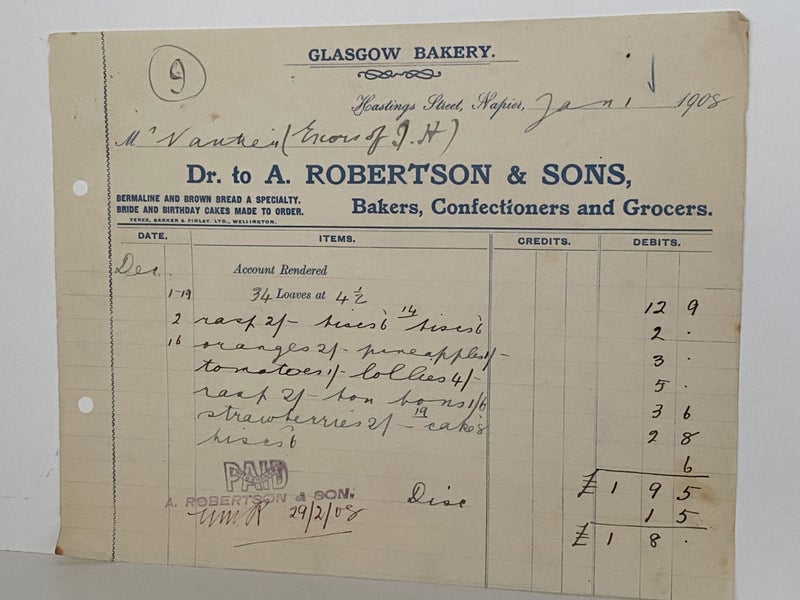 9
GLASGOW BAKERY.
Hastings Street, Napier, Jan 1 1908
Mr (Exors of J. H)
Dr. to A. ROBERTSON & SONS,
BERMALINE AND BROWN BREAD A SPECIALTY.
BRIDE AND BIRTHDAY CAKES MADE TO ORDER.
Bakers, Confectioners and Grocers.
YEREX, BARKER & FINLAY, LTD., WELLINGTON.
DATE. ITEMS. CREDITS. DEBITS.
Dec. Account Rendered
1-19 34 Loaves at 4½ 12 9
2 rasp 2/- biscs 6 14 biscs 6 2 .
16 oranges 2/- pineapples 1/- 3 .
tomatoes 1/- lollies 4/- 5 .
rasp 2/- bon bons 1/6 3 6
strawberries 2/- 19 cake 8 2 8
biscs 6 6
£ 1 9 5
PAID
A. ROBERTSON & SON.
Disc 1 5
29/2/08
£ 1 8 .